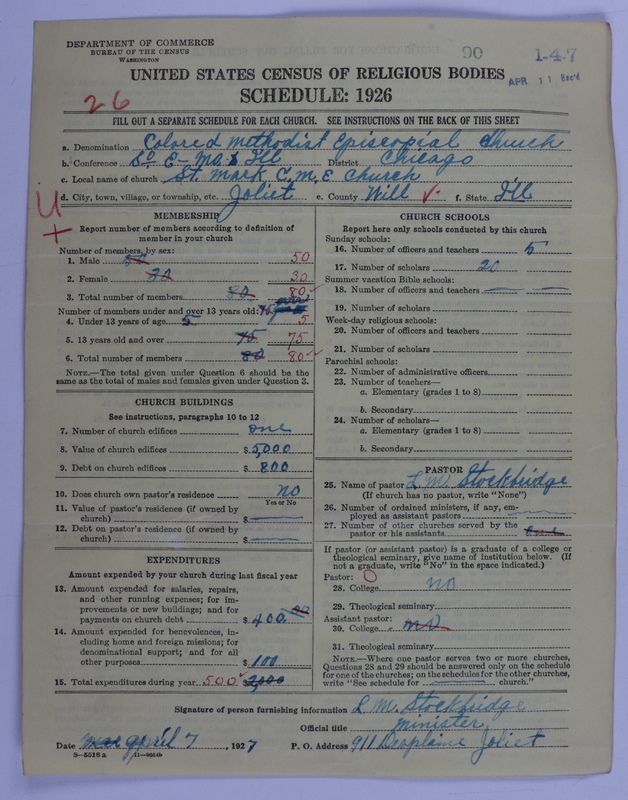 DEPARTMENT OF COMMERCE
BUREAU OF THE CENSUS
WASHINGTON
90
1-4-7
APR 11 Rec'd
UNITED STATES CENSUS OF RELIGIOUS BODIES
26
SCHEDULE: 1926
FILL OUT A SEPARATE SCHEDULE FOR EACH CHURCH. SEE INSTRUCTIONS ON THE BACK OF THIS SHEET
a. Denomination Colored Methodist Episcopial Church
b. Conference So E- Mo. & Ill District Chicago
c. Local name of church St. Mark C. M. E Church
d. City, town, village, or township, etc. Joliet e. County Will f. State Ill
MEMBERSHIP
Report number of members according to definition of
member in your church
Number of members, by sex:
1. Male 50
2. Female 30 30
3. Total number of members 80 80
Number of members under and over 13 years old:
4. Under 13 years of age 5 5
5. 13 years old and over 75 75
6. Total number of members 80 80
NOTE.—The total given under Question 6 should be
same as the total of males and females given under Question 3.
CHURCH BUILDINGS
See instructions, paragraphs 10 to 12
7. Number of church edifices one
8. Value of church edifices $5,000
9. Debt on church edifices $ 800
10. Does church own pastor's residence no
Yes or No
11. Value of pastor's residence (if owned by
church) $
12. Debt on pastor's residence (if owned by
church) $
EXPENDITURES
Amount expended by your church during last fiscal year
13. Amount expended for salaries, repairs,
and other running expenses; for im-
provements or new buildings; and for
payments on church debt $400.
14. Amount expended for benevolences, in-
cluding home and foreign missions; for
denominational support; and for all
other purposes $100
15. Total expenditures during year 500
CHURCH SCHOOLS
Report here only schools conducted by this church
Sunday schools:
16. Number of officers and teachers 5
17. Number of scholars 20
Summer vacation Bible schools:
18. Number of officers and teachers
19. Number of scholars
Week-day religious schools:
20. Number of officers and teachers
21. Number of scholars
Parochial schools:
22. Number of administrative officers
23. Number of teachers—
a. Elementary (grades 1 to 8)
b. Secondary
24. Number of scholars—
a. Elementary (grades 1 to 8)
b. Secondary
PASTOR
25. Name of pastor L. M. Stockbridge
(If church has no pastor, write "None")
26. Number of ordained ministers, if any, em-
ployed as assistant pastors
27. Number of other churches served by the
pastor or his assistants
If pastor (or assistant pastor) is a graduate of a college or
theological seminary, give name of institution below. (If
not a graduate, write "No" in the space indicated.)
Pastor: O
28. College no
29. Theological seminary
Assistant pastor:
30. College no
31. Theological seminary
NOTE.—Where one pastor serves two or more churches,
Questions 28 and 29 should be answered only on the schedule
for one of the churches; on the schedules for the other churches,
write "See schedule for church."
Signature of person furnishing information L. M. Stockbridge
Official title minister
Date april 7, 1927 P. O. Address 911 Desplaine Joliet
8—5518 a 11—9864b